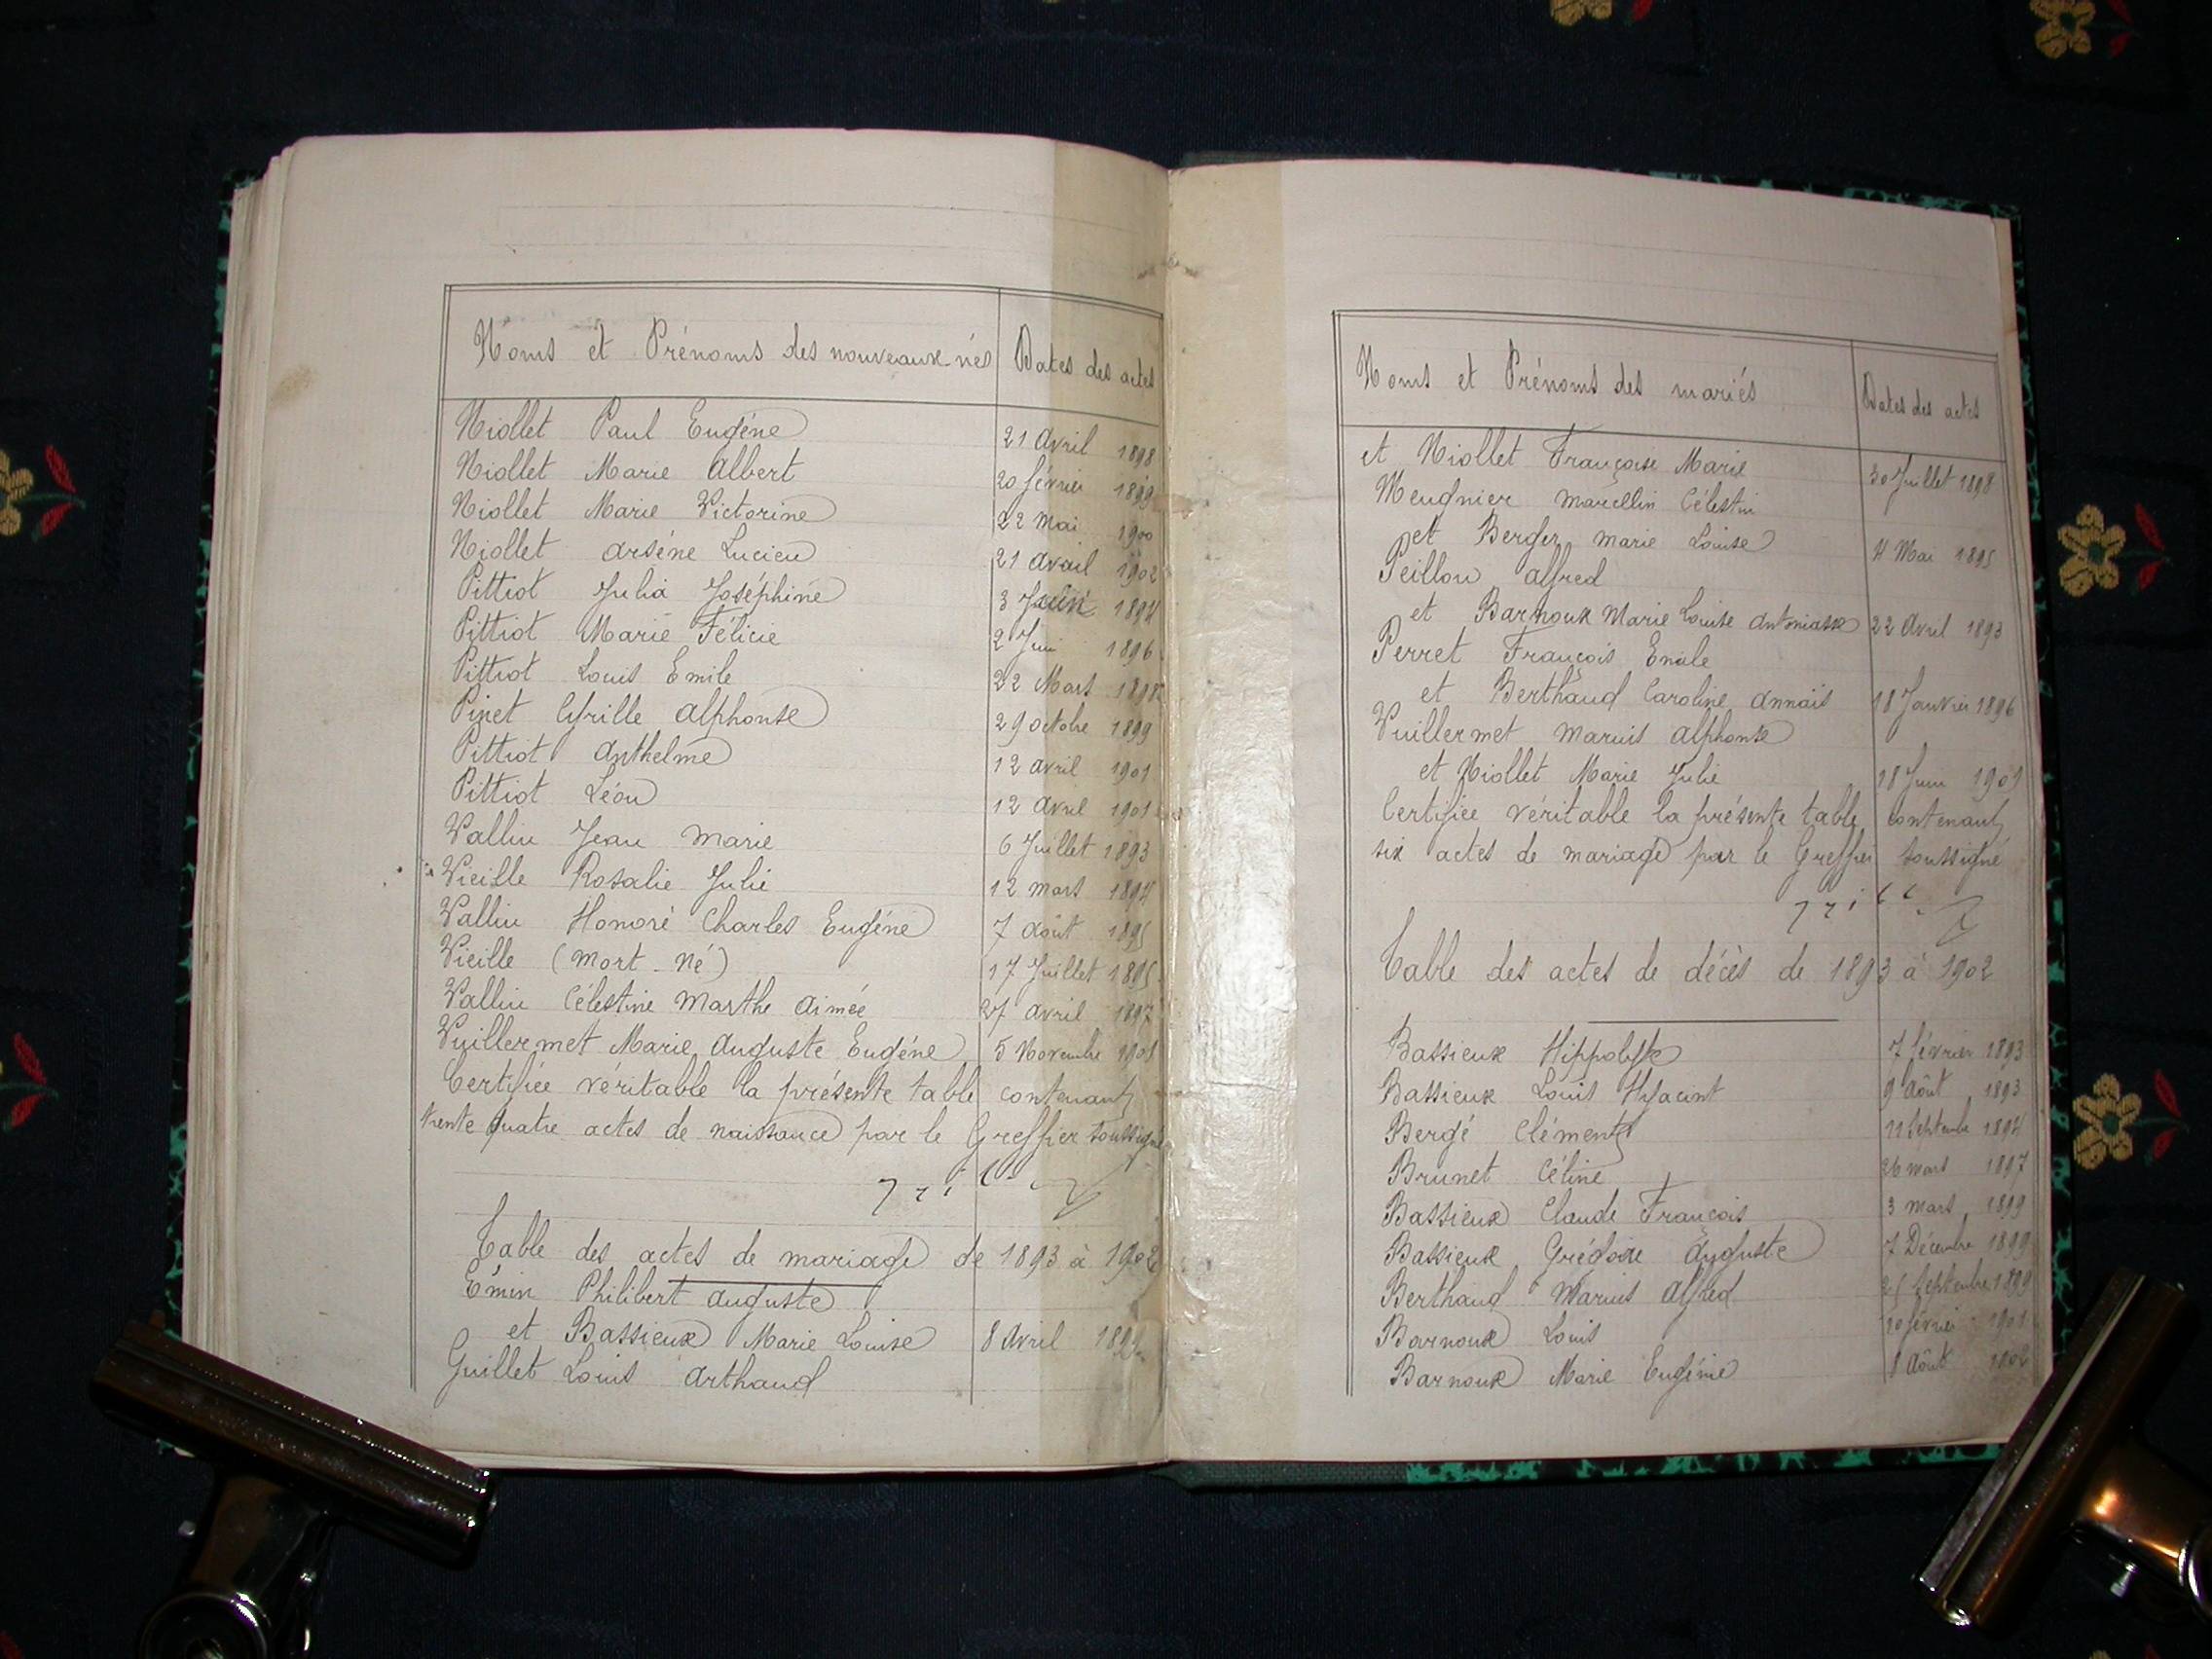 Noms et Prénoms des nouveaux-nés Dates des actes
Niollet Paul Eugéne 21 Avril 1898
Niollet Marie Albert 20 février 1899
Niollet Marie Victorine 22 Mai 1900
Niollet Arséne Lucien 21 Avril 1902
Pittiot Julia Joséphine 3 1894
Pittiot Marie Félicie 2 Juin 1896
Pittiot Louis Emile 22 Mars 1898
Pinet Cyrille Alphonse 29 octobre 1899
Pittiot Anthelme 12 avril 1901
Pittiot Léon 12 Avril 1901
Vallin Jean Marie 6 Juillet 1893
Vieille Rosalie Julie 12 mars 1894
Vallin Honoré Charles Eugéne 7 août 1895
Vieille (Mort-Né) 17 Juillet 1895
Vallin Célestine Marthe Aimée 27 avril 1897
Vuillermet Marie Auguste Eugéne 5 Novembre 1901
Certifiée véritable la présente table contenant
trente quatre actes de naissance par le Greffier soussigné
Table des actes de mariage de 1893 à 1902
Émin Philibert Auguste
et Bassieux Marie Louise 8 Avril 1899
Guillet Louis Arthaud
Noms et Prénoms des mariés Dates des actes
et Niollet Françoise Marie 30 Juillet 1898
Meugnier Marcellin Célestin
et Berger Marie Louise 4 Mai 1895
Peillon Alfred
et Barnoux Marie Louise 22 Avril 1893
Perret François Emile
et Berthaud Caroline Annaïs 18 Janvier 1896
Vuillermet Marius Alphonse
et Niollet Marie Julie 18 Juin 1901
Certifiée véritable la présente table contenant
six actes de mariage par le Greffier soussigné
Table des actes de décès de 1893 à 1902
Bassieux Hippolyte 7 février 1893
Bassieux Louis Hyacint 9 Août 1893
Bergé Clément 11 Septembre 1894
Brunet Céline 26 mars 1897
Bassieux Claude François 3 mars 1899
Bassieux Grégoire Auguste 7 Décembre 1899
Berthaud Marius Alfred 25 Septembre 1899
Barnoux Louis 10 février 1901
Barnoux Marie Eugénie 8 Août 1902